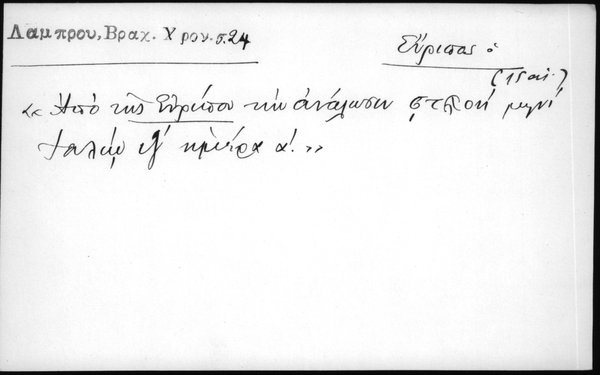 Λαμπρου, Βραχ. Χρον. σ. 24
Εὔριπος :
(15 αἰ.)
« Ἀπὸ τῆς Εὐρίπου τὴν ἀνάλωσιν ,ςτλση΄ μηνὶ
ἡμέρᾳ α΄. »